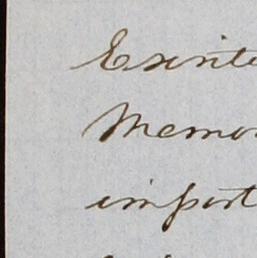 Exsinte
Memor
import